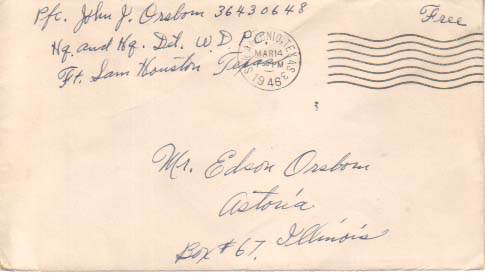 Pfc. John J. Orsborn 36430648
Free
Hq. and Hq. Det. W.D.P.C.
Ft. Sam Houston Texas
SAN ANTONIO, TEXAS
MAR 14
PM
1946
3
Mr. Edson Orsborn
Astoria
Box #67, Illinois